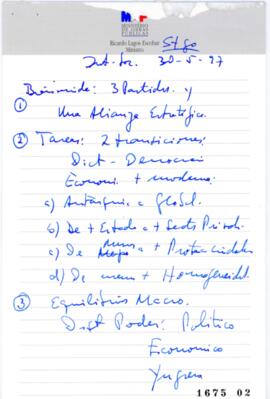 MINISTERIO
DE OBRAS
PUBLICAS
Ricardo Lagos Escobar
Ministro
Stgo
30-5-97
Bienvenida: 3 Partidos y
①
Una Alianza Estratégica.
② Tareas: 2 transiciones:
Dict - Democracia
Economi + moderna:
a) Autarquia a Global.
b) De + Estado a + Sector Privado.
c) De a +
d) De menos + Homogeneidad.
③ Equilibrios Macro.
Dist Poder: Politico
Economico
1675 02